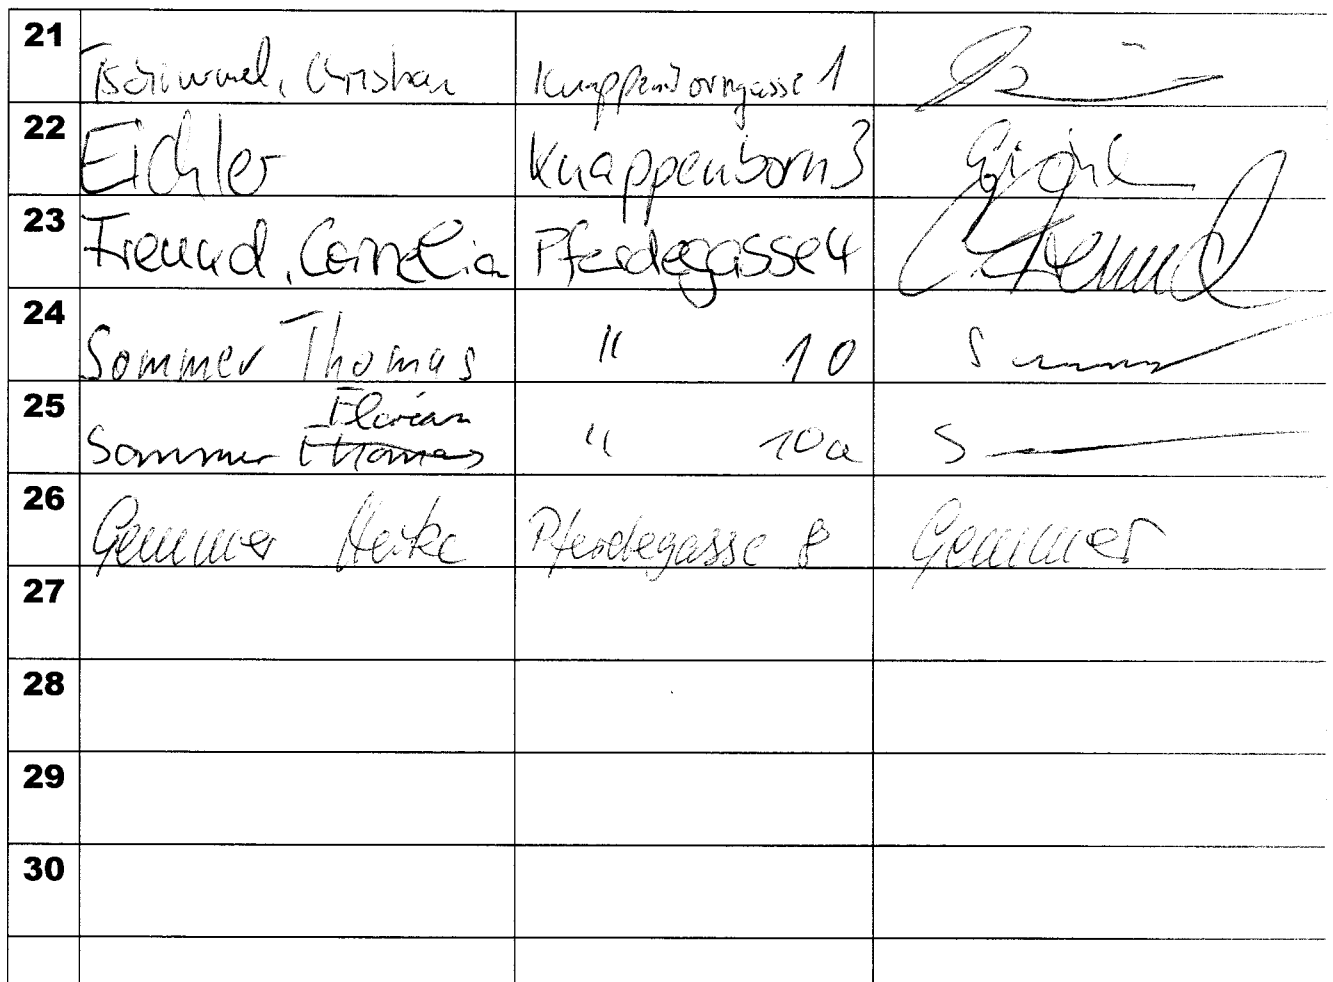 21 Christian Knappenborngasse 1
22 Eichler Knappenborn 3 Eichl
23 Freund, Cornelia Pferdegasse 4 C. Freund
24 Sommer Thomas " 10 S
25 Florian
Sommer Thomas " 10a S
26 Gemmer Heike Pferdegasse 8 Gemmer
27
28
29
30